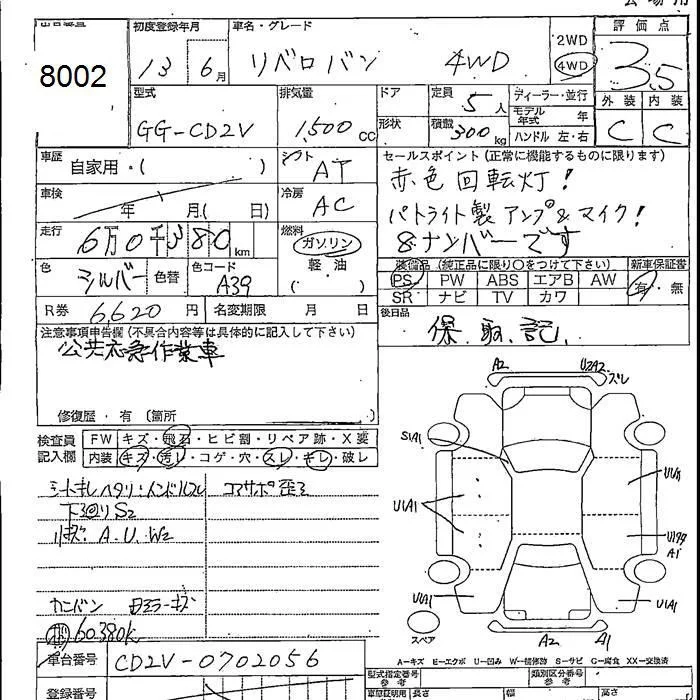 8002
初度登録年月
13 6月
車名・グレード
リベロバン 4WD
2WD
4WD
評価点
3.5
外装 内装
C C
型式
GG-CD2V
排気量
1,500 CC
ドア
形状
定員
5人
積載
300kg
ディーラー・並行
モデル年式 年
ハンドル 左・右
車歴
自家用・( )
シフト
AT
車検
年 月( 日)
冷房
AC
走行
6万0千380km
燃料
ガソリン
軽油
( )
色
シルバー
色替
色コード
A39
R券 6,620円
名変期限 月 日
セールスポイント(正常に機能するものに限ります)
赤色回転灯!
パトライト製アンプ&マイク!
8ナンバーです
装備品(純正品に限り○をつけて下さい)
PS PW ABS エアB AW
SR ナビ TV カワ
新車保証書
有・無
後日品
保.取.記.
注意事項申告欄(不具合内容等は具体的に記入して下さい)
公共応急作業車
修復歴・有(箇所
検査員記入欄
FW キズ・飛石・ヒビ割・リペア跡・X要
内装 キズ・汚レ・コゲ・穴・スレ・キレ・破レ
下回りS2
A.U.W2
カンバン
60,380K
車台番号
CD2V-0702056
登録番号
A2
U2A2
ズレ
S1A1
U1A1
U1A1
U1A1
A1
A2
A1
スペア
A-キズ E-エクボ U-凹み W-補修跡 S-サビ C-腐食 XX-交換済
型式指定参考
類別区分番号参考
長さ
幅
高さ